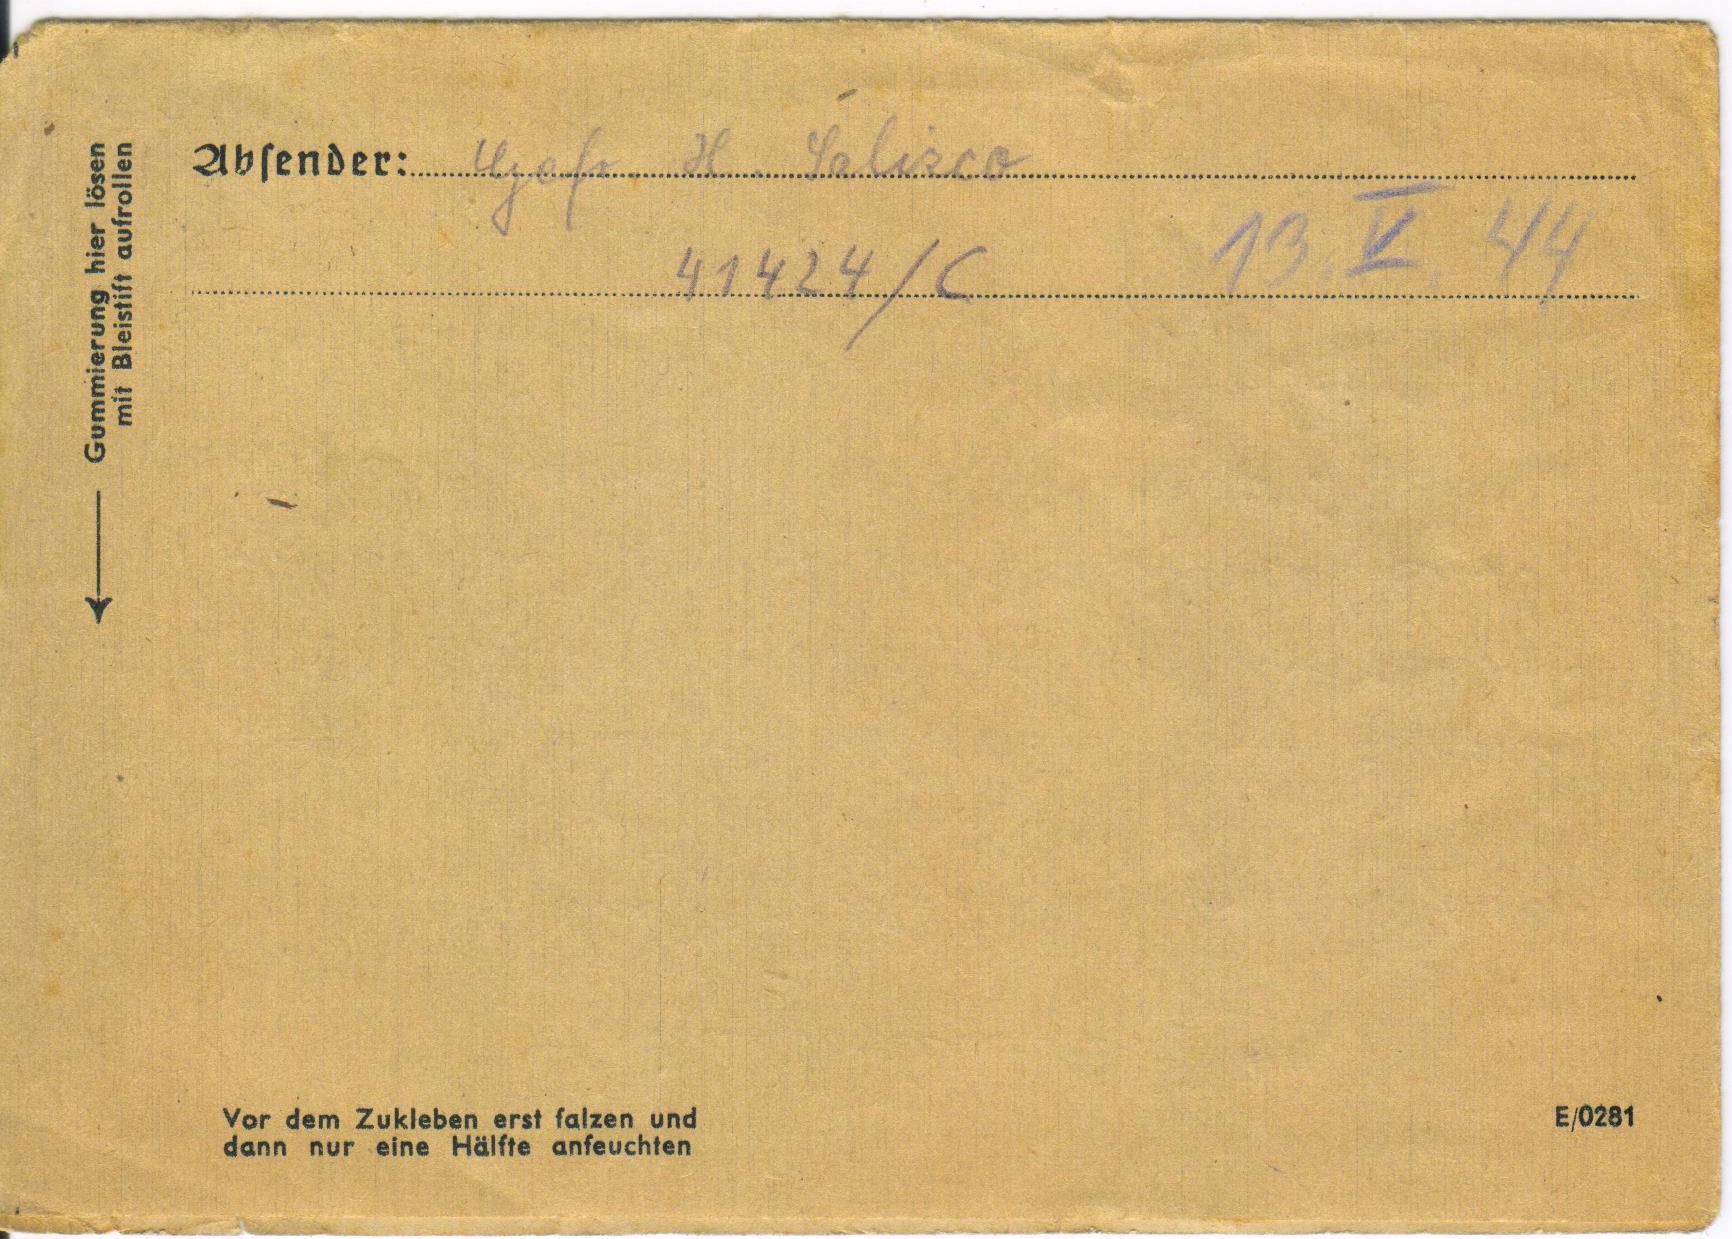 Gummierung hier lösen
mit Bleistift aufrollen
Abſender: H. Salisco
41424/C
13. V. 44
Vor dem Zukleben erst falzen und
dann nur eine Hälfte anfeuchten
E/0281